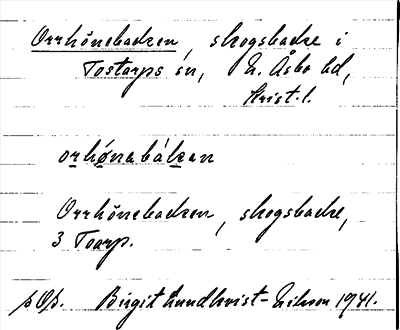 Orrhönebacken, skogsbacke i
Tostarps sn, N. Åsbo hd,
Krist. l.
orhønabákan
Orrhönebacken, skogsbacke,
3 Toarp.
pOp. Birgit Lundkvist-Nilsson 1941.